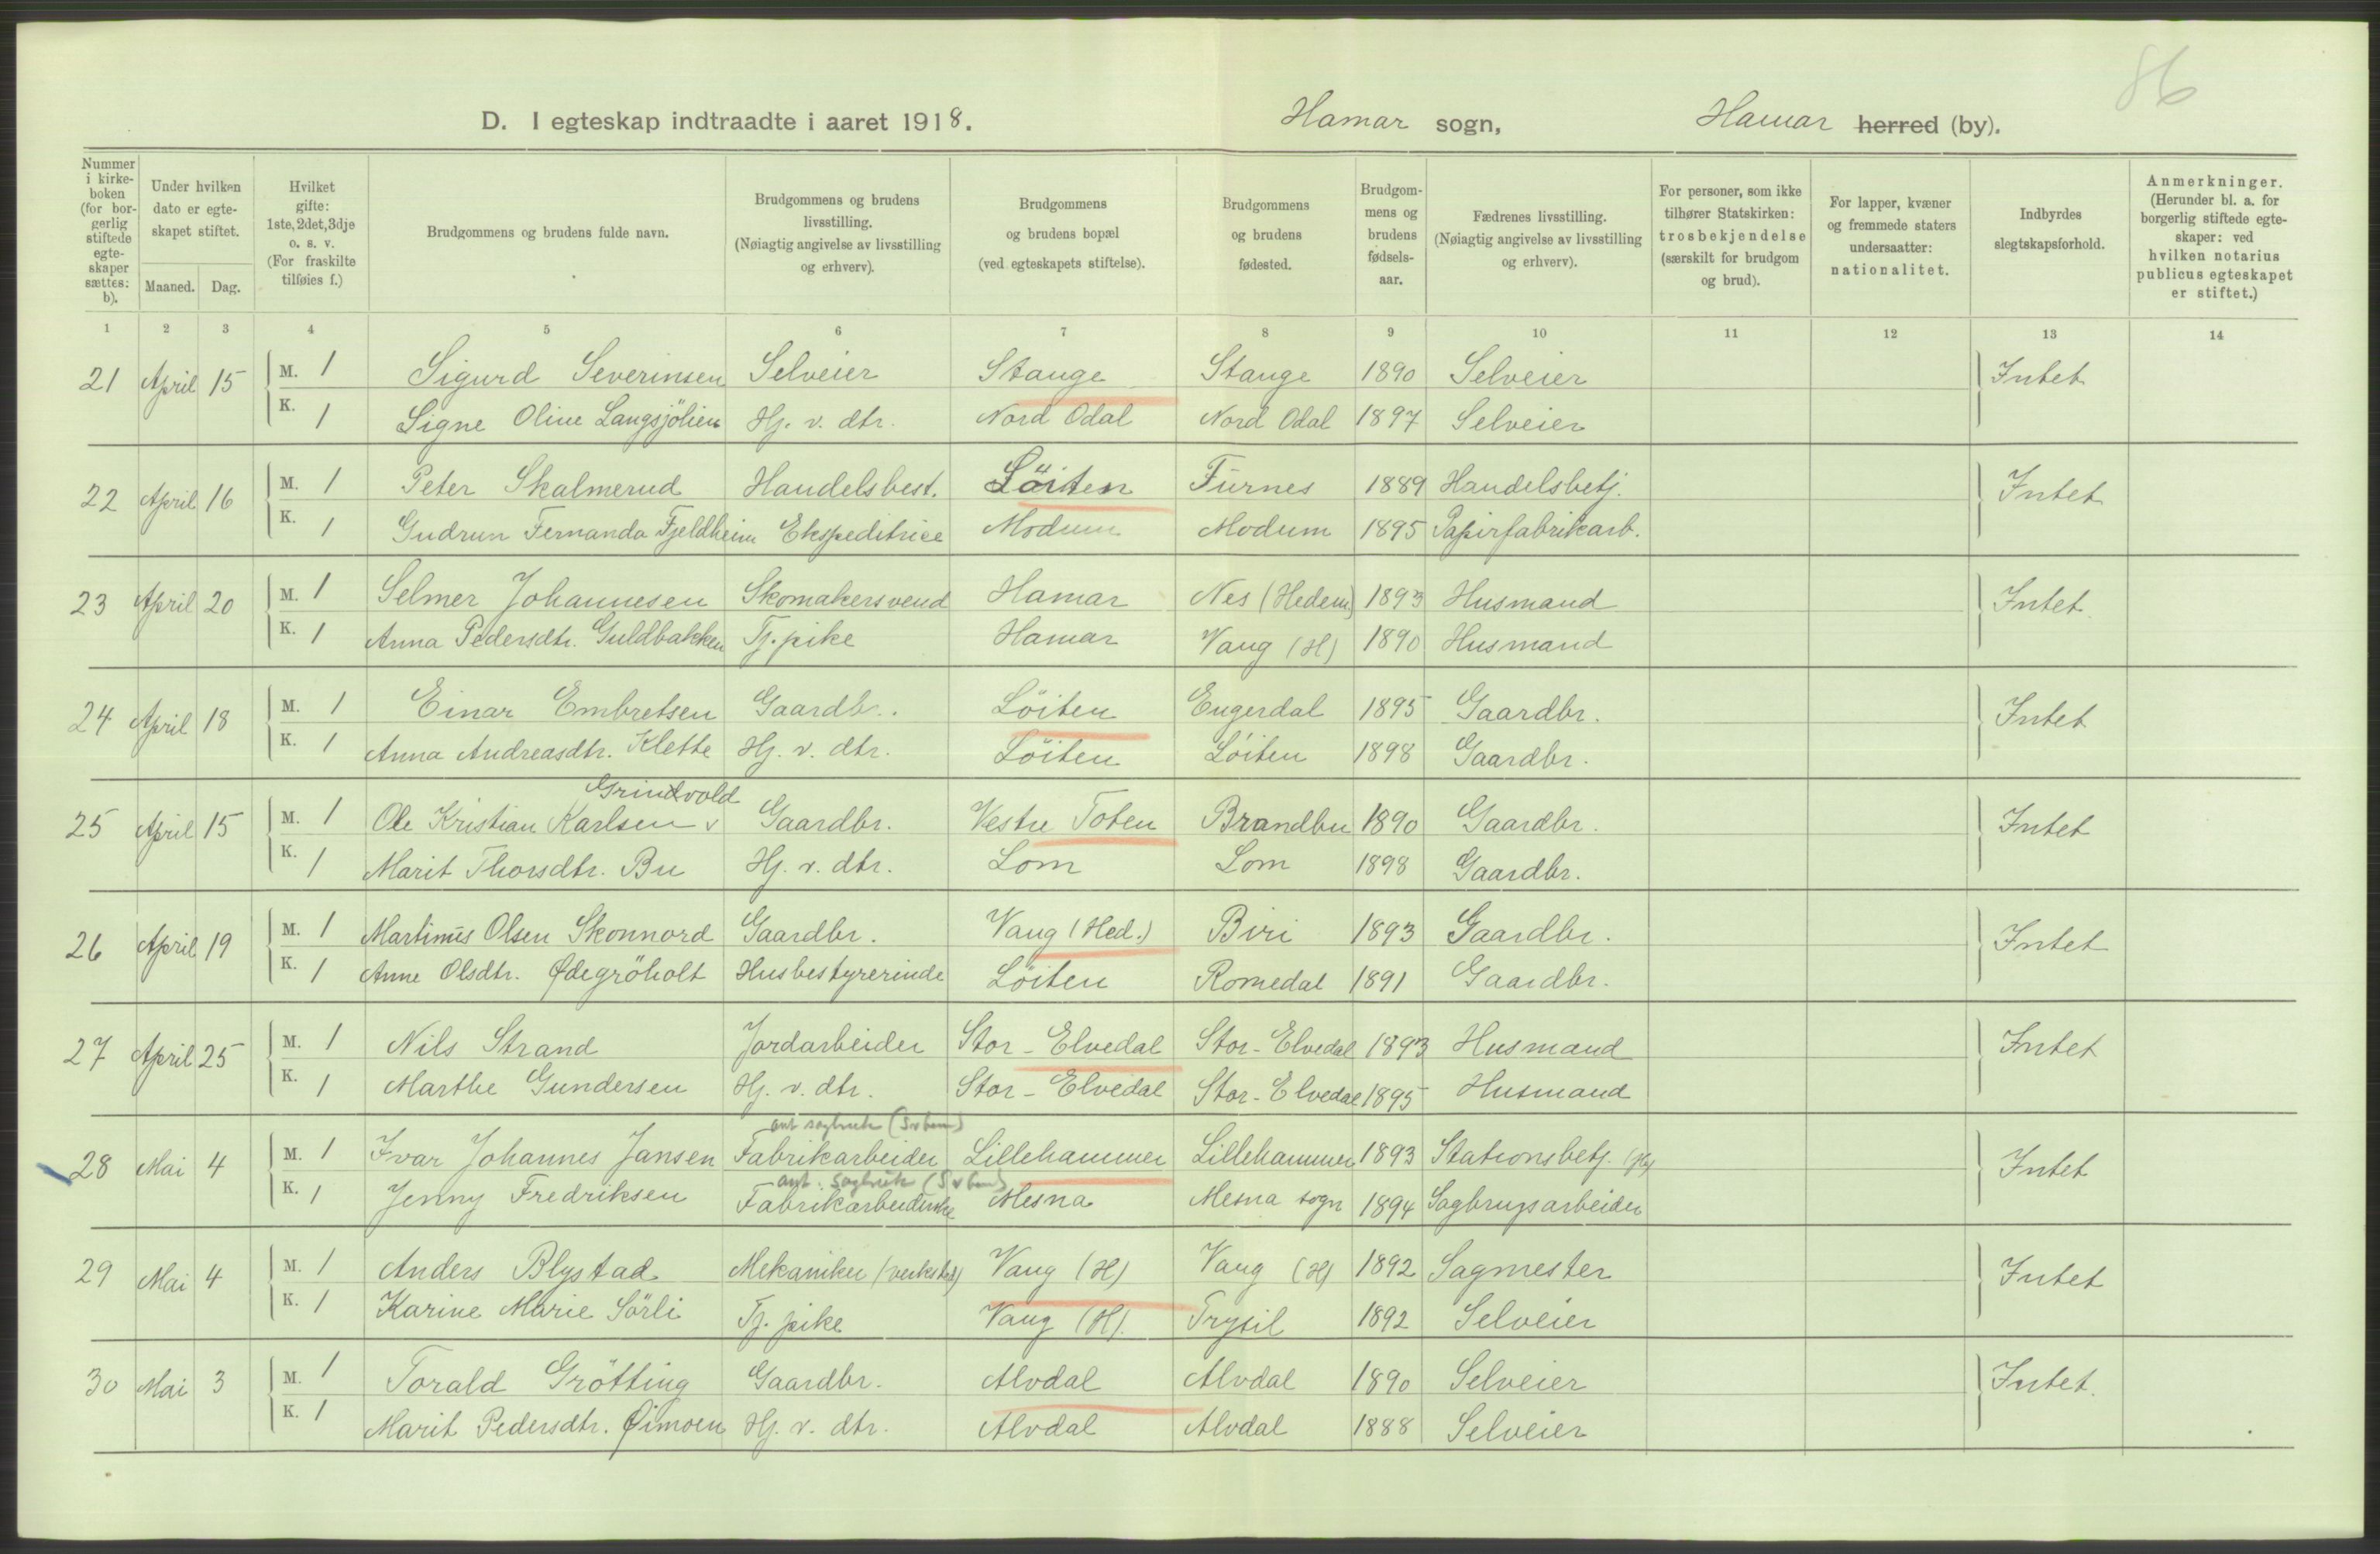 86
D. I egteskap indtraadte i aaret 1918. Hamar sogn, Hamar herred (by).
Nummer i kirkeboken (for borgerlig stiftede egteskaper sættes: b). Under hvilken dato er egteskapet stiftet. Maaned. Dag. Hvilket gifte: 1ste, 2det, 3dje o. s. v. (For fraskilte tilføies f.) Brudgommens og brudens fulde navn. Brudgommens og brudens livsstilling. (Nøiagtig angivelse av livsstilling og erhverv). Brudgommens og brudens bopæl (ved egteskapets stiftelse). Brudgommens og brudens fødested. Brudgommens og brudens fødselsaar. Fædrenes livsstilling. (Nøiagtig angivelse av livsstilling og erhverv). For personer, som ikke tilhører Statskirken: trosbekjendelse (særskilt for brudgom og brud). For lapper, kvæner og fremmede staters undersaatter: nationalitet. Indbyrdes slegtskapsforhold. Anmerkninger. (Herunder bl. a. for borgerlig stiftede egteskaper: ved hvilken notarius publicus egteskapet er stiftet.)
1 2 3 4 5 6 7 8 9 10 11 12 13 14
21 April 15 M. 1 Sigurd Severinsen Selveier Stange Stange 1890 Selveier Intet
K. 1 Signe Oline Langsjölien Hj. v. dtr. Nord Odal Nord Odal 1897 Selveier
22 April 16 M. 1 Peter Skalmerud Handelsbest. Löiten Furnes 1889 Handelsbetj. Intet
K. 1 Gudrun Fernanda Fjeldheim Ekspeditrice Modum Modum 1895 Papirfabrikarb.
23 April 20 M. 1 Selmer Johannesen Skomakersvend Hamar Nes (Hedem) 1893 Husmand Intet
K. 1 Anna Pedersdtr. Guldbakken Tj. pike Hamar Vang (H) 1890 Husmand
24 April 18 M. 1 Einar Embretsen Gaardbr. Löiten Engerdal 1895 Gaardbr. Intet
K. 1 Anna Andreasdtr. Klette Hj. v. dtr. Löiten Löiten 1898 Gaardbr.
Grindvold
25 April 15 M. 1 Ole Kristian Karlsen v Gaardbr. Vestre Toten Brandbu 1890 Gaardbr. Intet
K. 1 Marit Thorsdtr. Bu Hj. v. dtr. Lom Lom 1898 Gaardbr.
26 April 19 M. 1 Martinus Olsen Skonnord Gaardbr. Vang (Hed.) Biri 1893 Gaardbr. Intet
K. 1 Anne Olsdtr. Ødegröholt Husbestyrerinde Löiten Romedal 1891 Gaardbr.
27 April 25 M. 1 Nils Strand Jordarbeider Stor-Elvedal Stor-Elvedal 1893 Husmand Intet
K. 1 Marthe Gundersen Hj. v. dtr. Stor-Elvedal Stor-Elvedal 1895 Husmand
28 Mai 4 M. 1 Ivar Johannes Jansen Fabrikarbeider Lillehammer Lillehammer 1893 Stationsbetj. Intet
K. 1 Jenny Fredriksen Fabrikarbeiderske Mesna Mesna sogn 1894 Sagbrugsarbeider
29 Mai 4 M. 1 Anders Blystad Mekaniker (verksted) Vang (H) Vang (H) 1892 Sagmester Intet
K. 1 Karine Marie Sörli Tj. pike Vang (H). Trysil 1892 Selveier
30 Mai 3 M. 1 Torald Grötting Gaardbr. Alvdal Alvdal 1890 Selveier Intet.
K. 1 Marit Pedersdtr. Øimoen Hj. v. dtr. Alvdal Alvdal 1888 Selveier